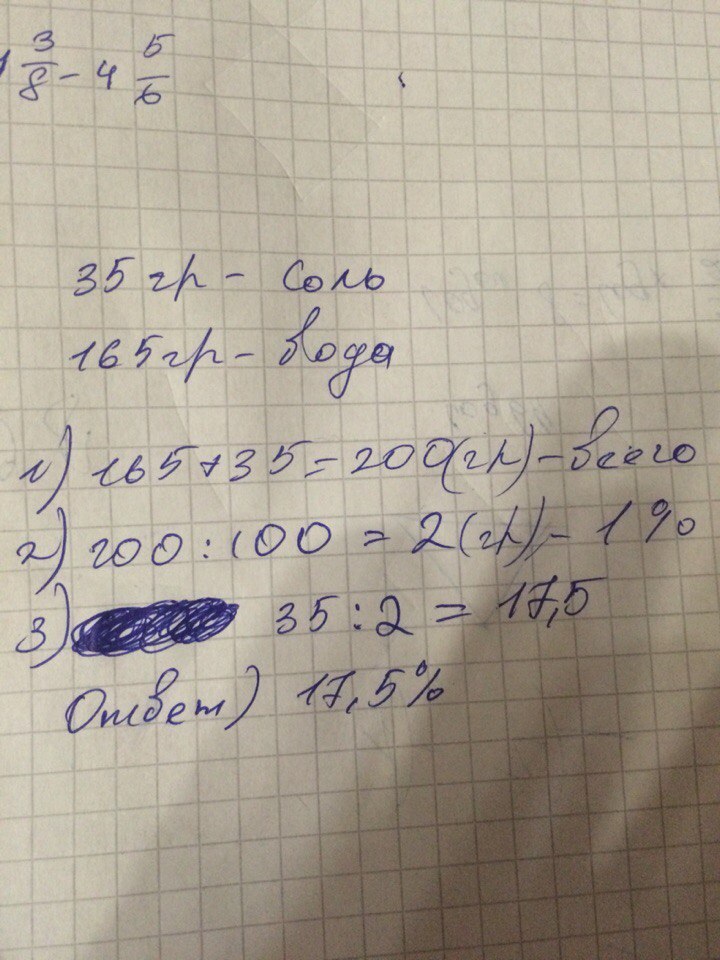 1 3/8 - 4 5/6
35 гр - соль
165 гр - вода
1) 165 + 35 = 200 (гр) - всего
2) 200 : 100 = 2 (гр) - 1 %
3) 35 : 2 = 17,5
Ответ) 17,5%